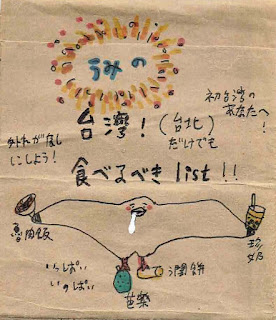 うみの
初台湾の
あなたへ!
台湾!
(台北)
だけでも
外れが無し
にしよう!
食べるべき list!!
魯肉飯
珍奶
いっぱい
いのぱい
芭樂
潤餅